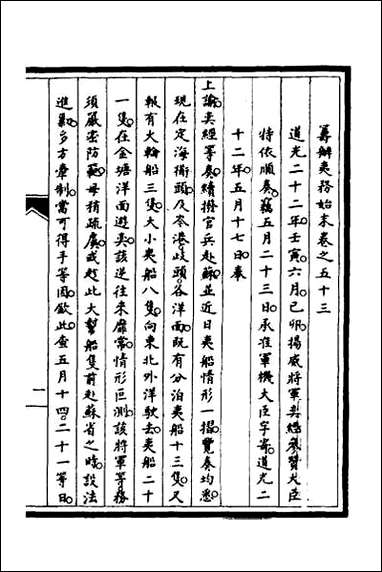 籌辦夷務始末卷之五十三
道光二十二年壬寅六月己卯揚威將軍奕經參贊大臣
特依順奏竊五月二十三日承准軍機大臣字寄道光二
十二年五月十七日奉
上諭奕經等奏續撥官兵赴蘇並近日夷船情形一摺覽奏均悉
現在定海衜頭及岑港歧頭各洋面既有分泊夷船十三隻又
報有大輪船三隻大小夷船八隻向東北外洋駛去夷船二十
一隻在金塘洋面遊奕該逆往來靡常情形叵測該將軍等務
須嚴密防範毋稍疏虞或趁此大幫船隻前赴蘇省之時設法
進剿多方牽制當可得手等因欽此查五月十四二十一等日
二